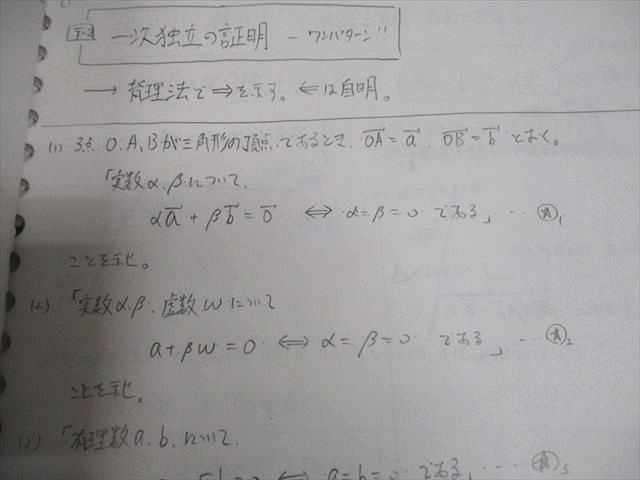 テーマ 一次独立の証明 ― ワンパターン!!
→ 背理法で⇒を示す。 ⇐は自明。
(1) 3点 O, A, Bが三角形の頂点であるとき, OA = a, OB = b とおく。
「実数α, βについて,
αa + βb = 0 ⇔ α=β=0 である」 … Ⓐ1
ことを示せ。
(2) 「実数α, β, 虚数wについて
a+βw=0 ⇔ α=β=0 である」 … Ⓐ2
ことを示せ。
(3) 「有理数a, b,について,
=0 ⇔ a=b=0 である」 … Ⓐ3